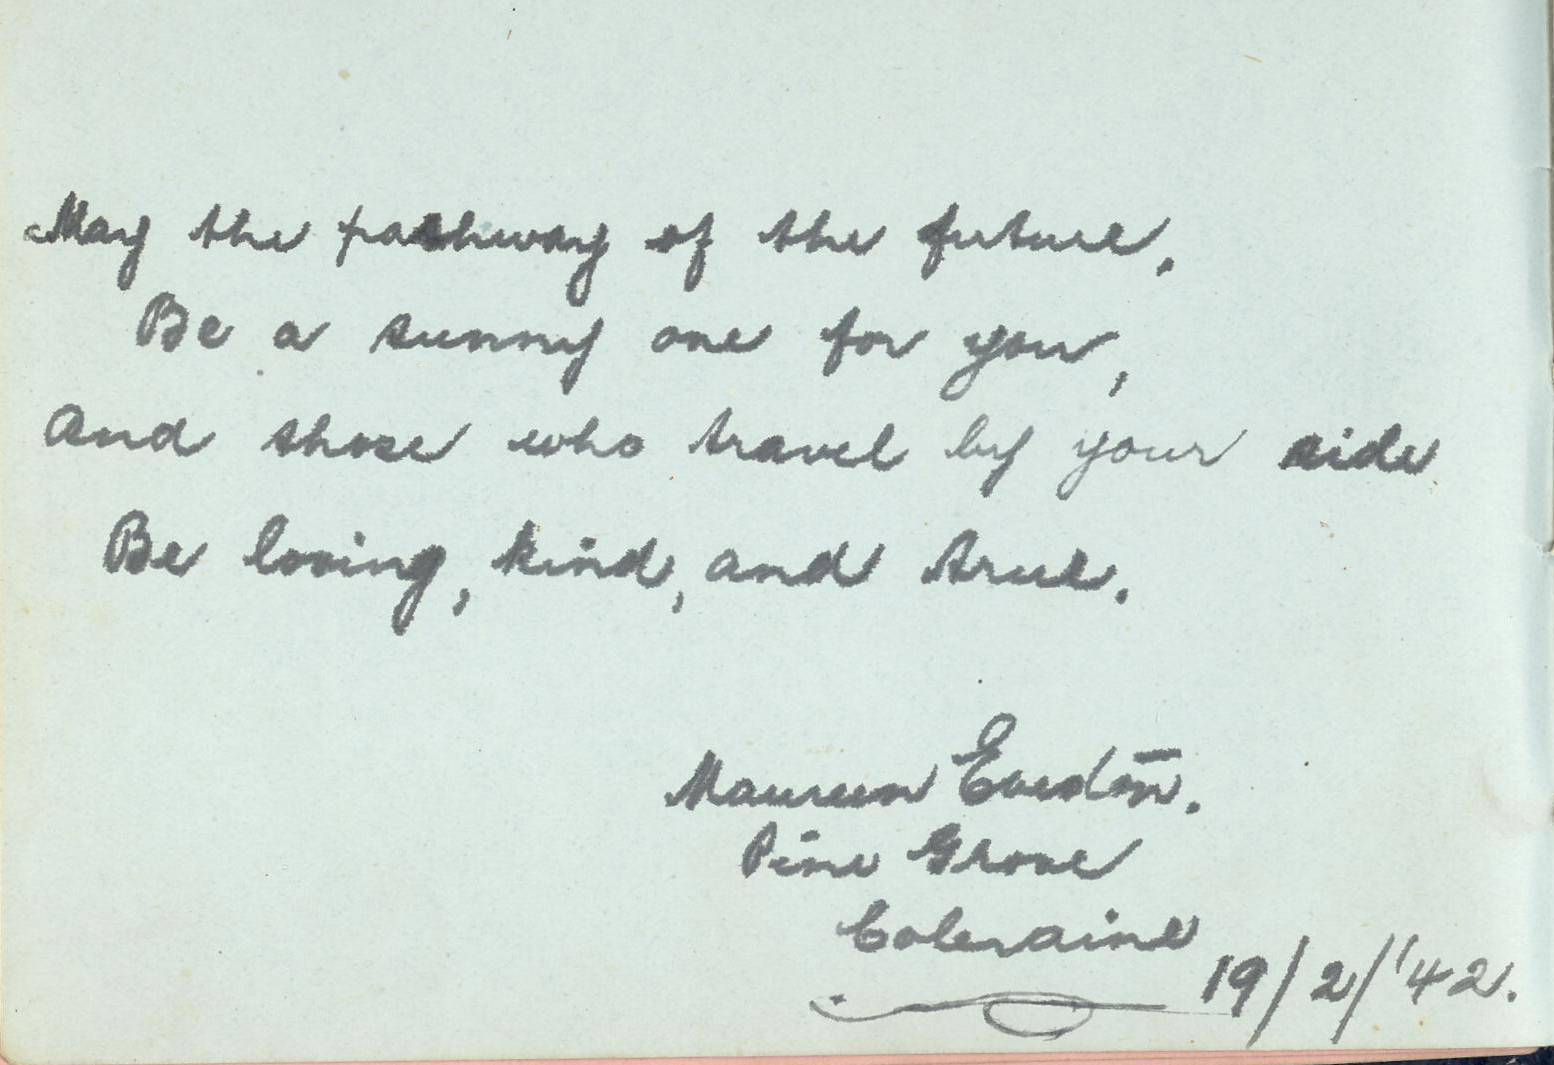 May the pathway of the future,
Be a sunny one for you,
And those who travel by your side
Be loving, kind, and true.
Maureen
Pine Grove
Coleraine
19/2/'42.